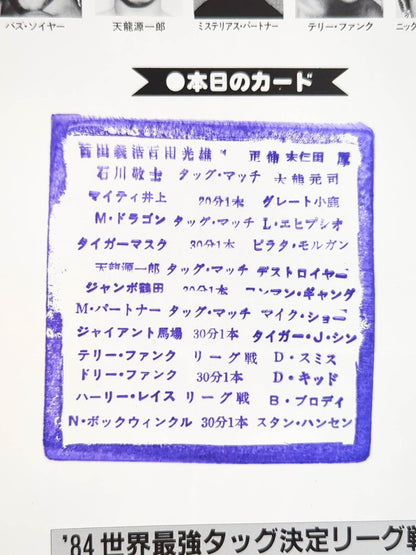 バズ・ソイヤー 天龍源一郎 ミステリアス・パートナー テリー・ファンク ニッ
●本日のカード
百田義浩 百田光雄 大仁田 厚
石川敬士 タッグ・マッチ 大熊元司
マイティ井上 20分1本 グレート小鹿
M・ドラゴン タッグ・マッチ L・エヒプシオ
タイガーマスク 30分1本 ピラタ・モルガン
天龍源一郎 タッグ・マッチ デストロイヤー
ジャンボ鶴田 30分1本
M・パートナー タッグ・マッチ マイク・ショー
ジャイアント馬場 30分1本 タイガー・J・シン
テリー・ファンク リーグ戦 D・スミス
ドリー・ファンク 30分1本 D・キッド
ハーリー・レイス リーグ戦 B・ブロディ
N・ボックウィンクル 30分1本 スタン・ハンセン
'84世界最強タッグ決定リーグ戦